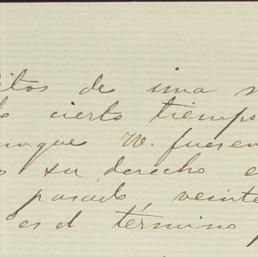 itos de una s
lo cierto tiempo
unque W. fuesen
s su derecho e
pasado veinte
es el término p